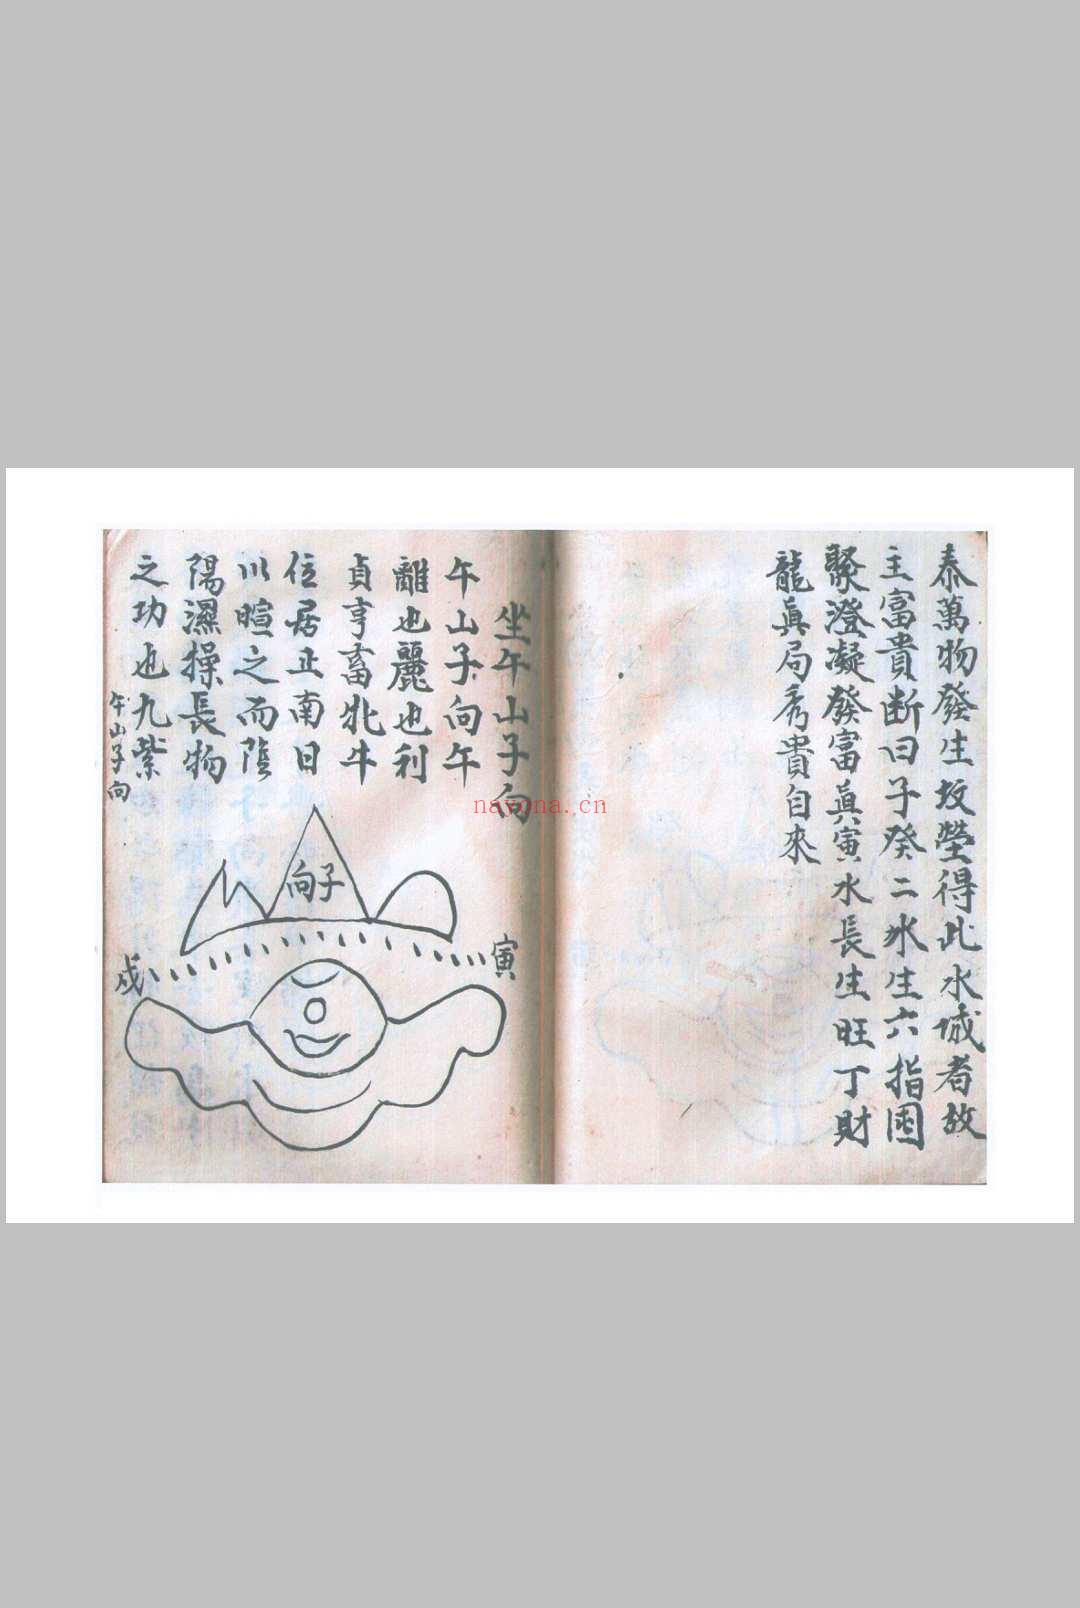 泰萬物發生坟塋得此水城者故
主富貴断曰子癸二水生六指困
聚澄凝發富眞寅水長生旺丁財
龍眞局秀貴自來
坐午山子向
午山子向午
離也麗也利
貞亨畜牝牛
位居正南日
以暄之而陰
陽濕操長物
之功也九紫
午山子向
向子
寅
戍
nayona.cn